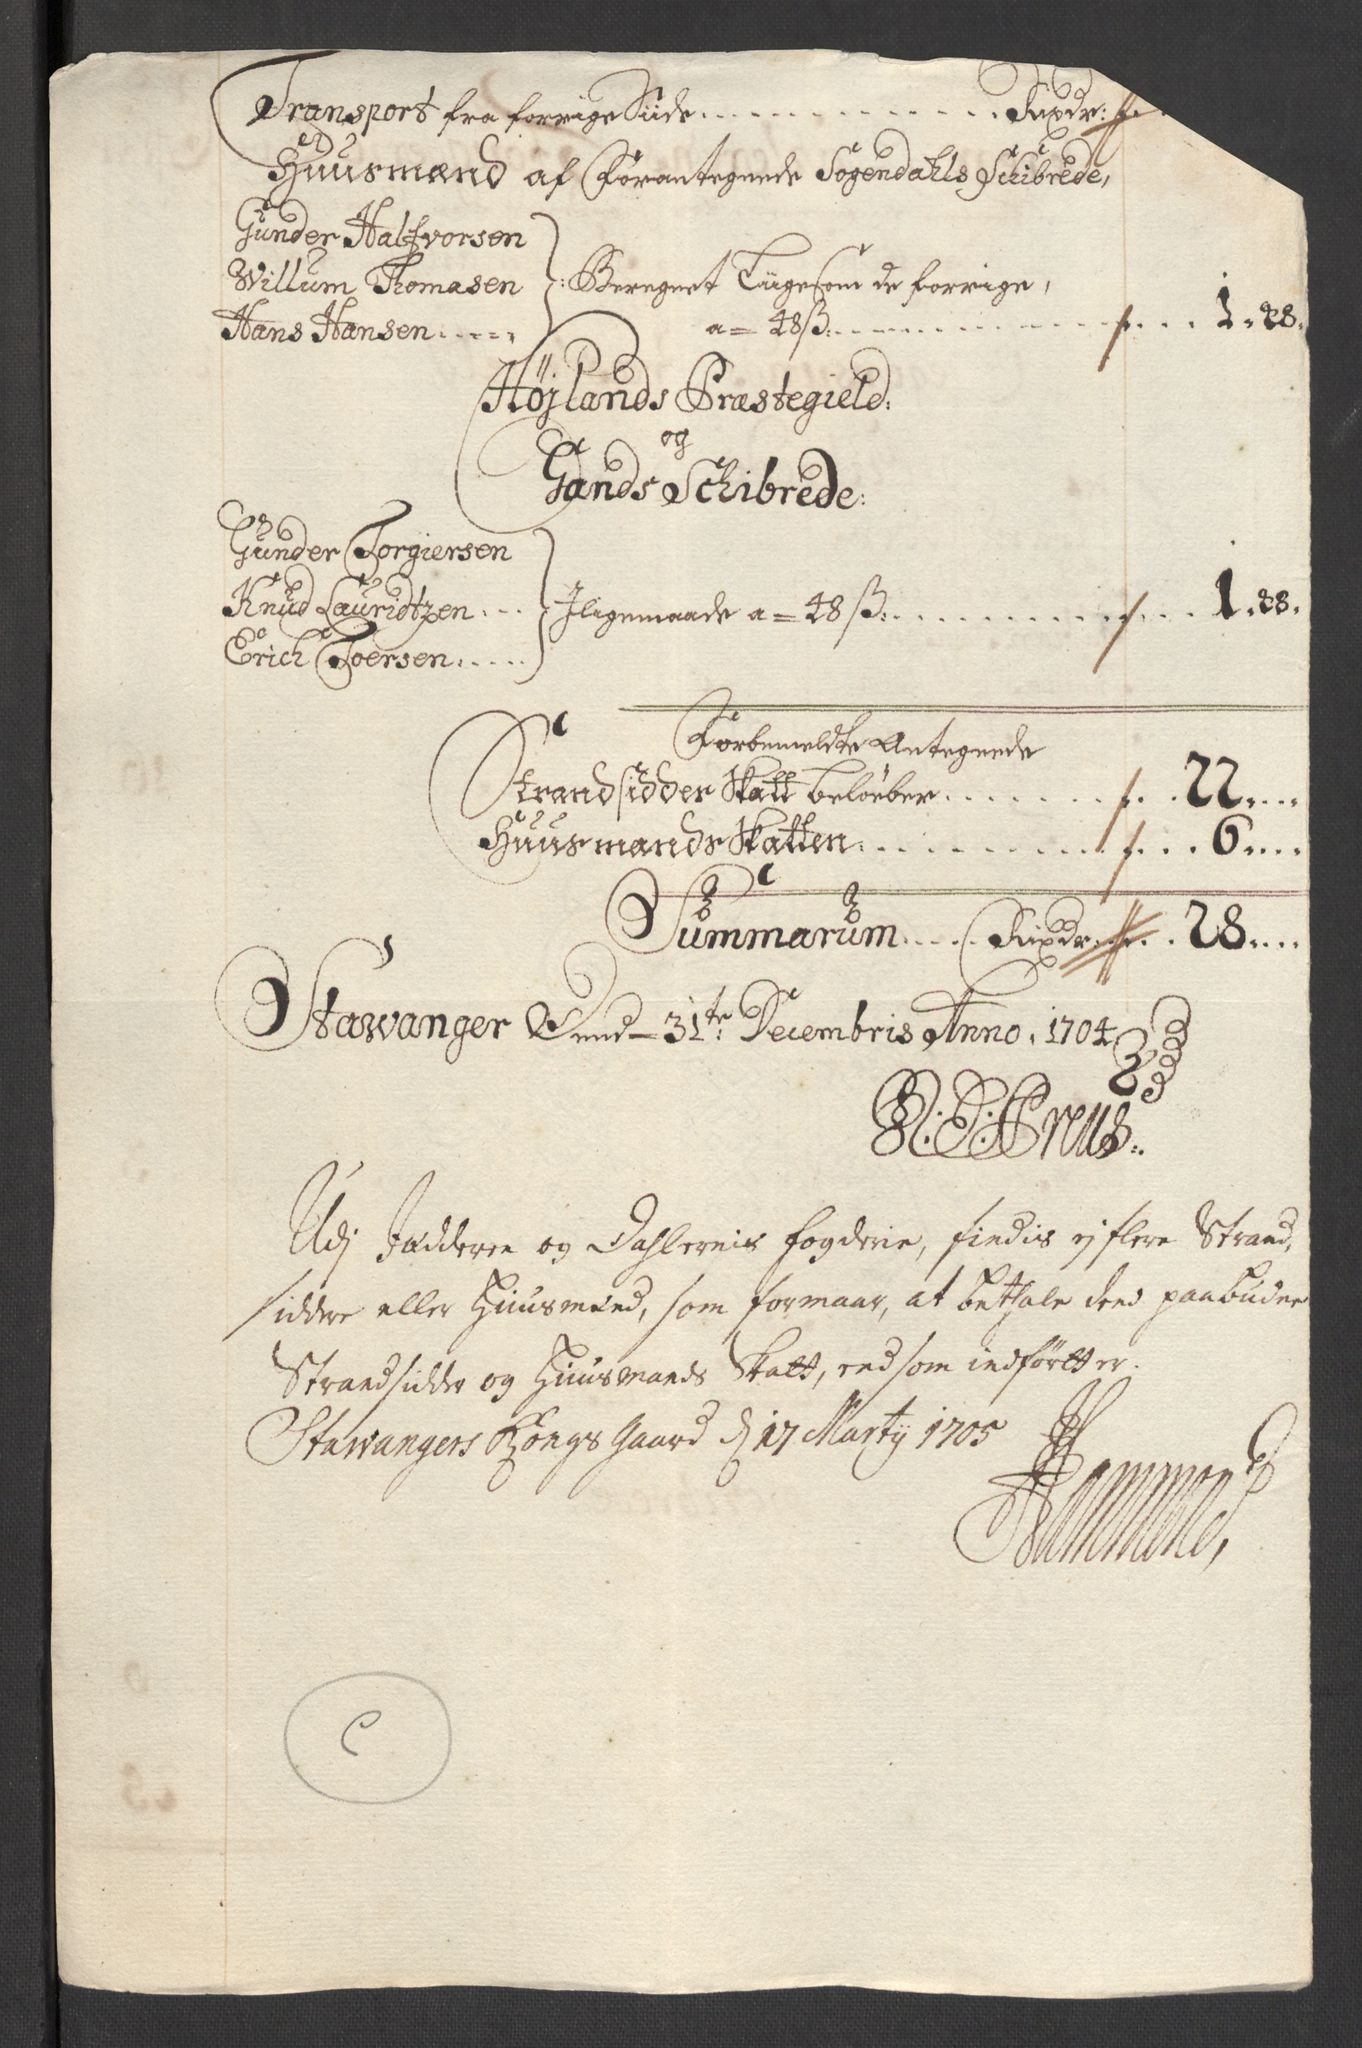 Transport fra forrige Siide ............ Rixdr:
Huusmænd af Forantegnede Sogendahls Schibrede,
Gunder Halfvorsen
Willum Thomasen : Beregnet Liige som de forrige,
Hans Hansen ..... a = 48 ß: ............ 1. 48.
Højlands Præstegield:
og
Gands Schibrede:
Gunder Torgiersen
Knud Lauridtzen ... Iligemaade a = 48 ß: ............ 1. 48.
Erich Toersen .....
Forbemeldte Antegnede
Strandsidder Skatt beløber ........ 22 ....
Huusmands Skatten ........ 6 ....
Summarum .... Rixdr. ... 28 ....
Stawanger Dend 31te Decembris Anno. 1704
Udj Jædderen og Dahlernis fogderie, findis ej flere Strand,
siddere eller Huusmænd, som formaar, at betahle dend paabudne
Strandsidder og Huusmands Skatt, end som indført er.
Stawangers Kongs Gaard d 17 Martij 1705
C